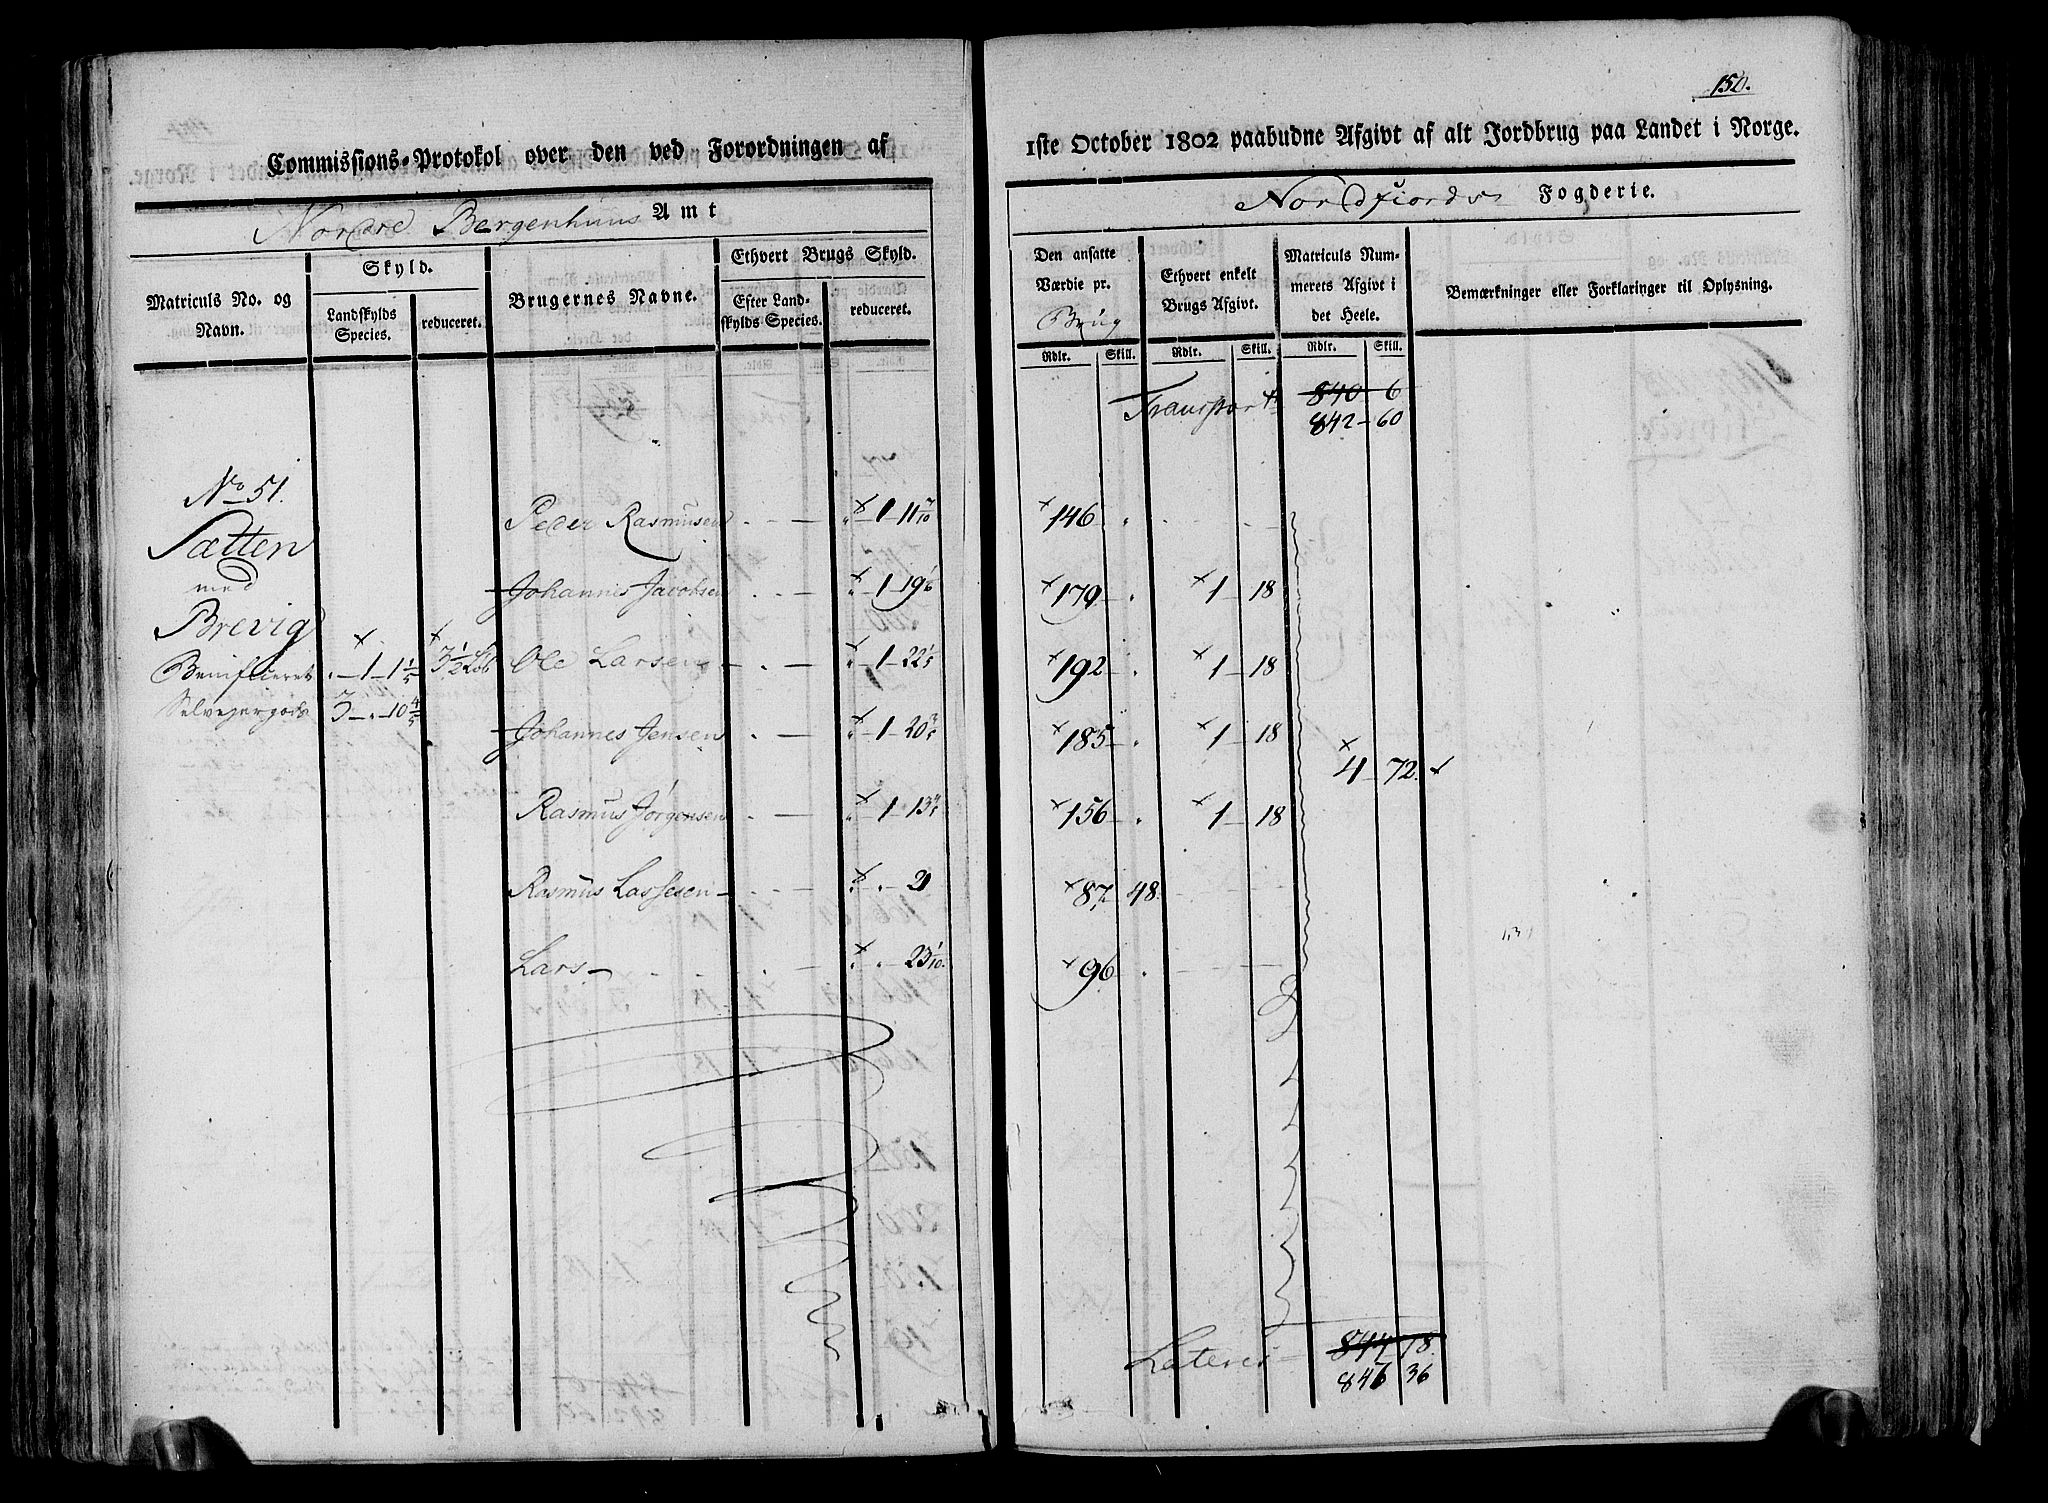 150.
Commissions-Protokol over den ved Forordningen af
1ste October 1802 paabudne Afgivt af alt Jordbrug paa Landet i Norge.
Nordre Bergenhuus Amt
Nordfiords Fogderie.
Matriculs No. og Navn.
Skyld.
Landskylds Species.
reduceret.
Brugernes Navne.
Ethvert Brugs Skyld.
Efter Landskylds Species.
reduceret.
Den ansatte Værdie pr. Brug
Rdlr. Skill.
Ethvert enkelt Brugs Afgivt.
Rdlr. Skill.
Matriculs Nummerets Afgivt i det Heele.
Rdlr. Skill.
Bemærkninger eller Forklaringer til Oplysning.
Transport 840 6
842 - 60
No 51.
Sætten
med
Brevig
Benificeret " - 1 - 1 1/5 3 1/2 Løb
Selveyergods 3 - " - 10 4/5
Peder Rasmusen " - 1 - 11 7/10 146 "
Johannes Jacobsen " - 1 - 19 1/6 179 - " 1 - 18
Ole Larsen " - 1 - 22 1/5 192 - " 1 - 18
Johannes Jensen " - 1 - 20 3/5 185 - " 1 - 18
4 - 72.
Rasmus Jørgensen " - 1 - 13 4/5 156 - " 1 - 18
Rasmus Lassesen " " - 21 87 48.
Lars " " - 23 1/10 96 - "
Lateris 844 - 18
847 36